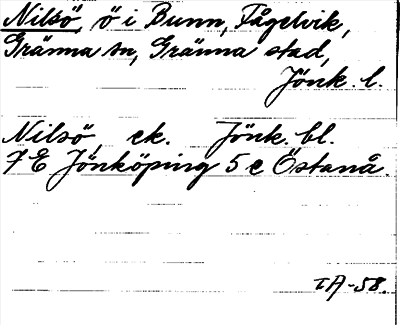 Nilsö, ö i Bunn, Fågelvik,
Gränna sn, Gränna stad,
Jönk. l.
Nilsö, ek. Jönk. bl.
7 E Jönköping 5 e Östanå.
IA-58.